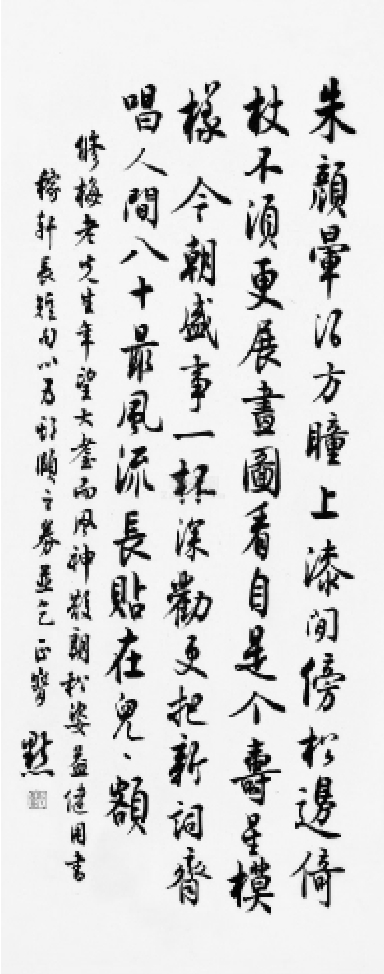 朱顏暈酒方瞳上漆閒傍松邊倚
杖不須更展畫圖看自是个壽星模
樣今朝盛事一杯深勸更把新詞齊
唱人間八十最風流長貼在兒〻額
修梅老先生年望大耋而風神散朗松姿益健用書
稼軒長短句以為期頤之券並乞正 默